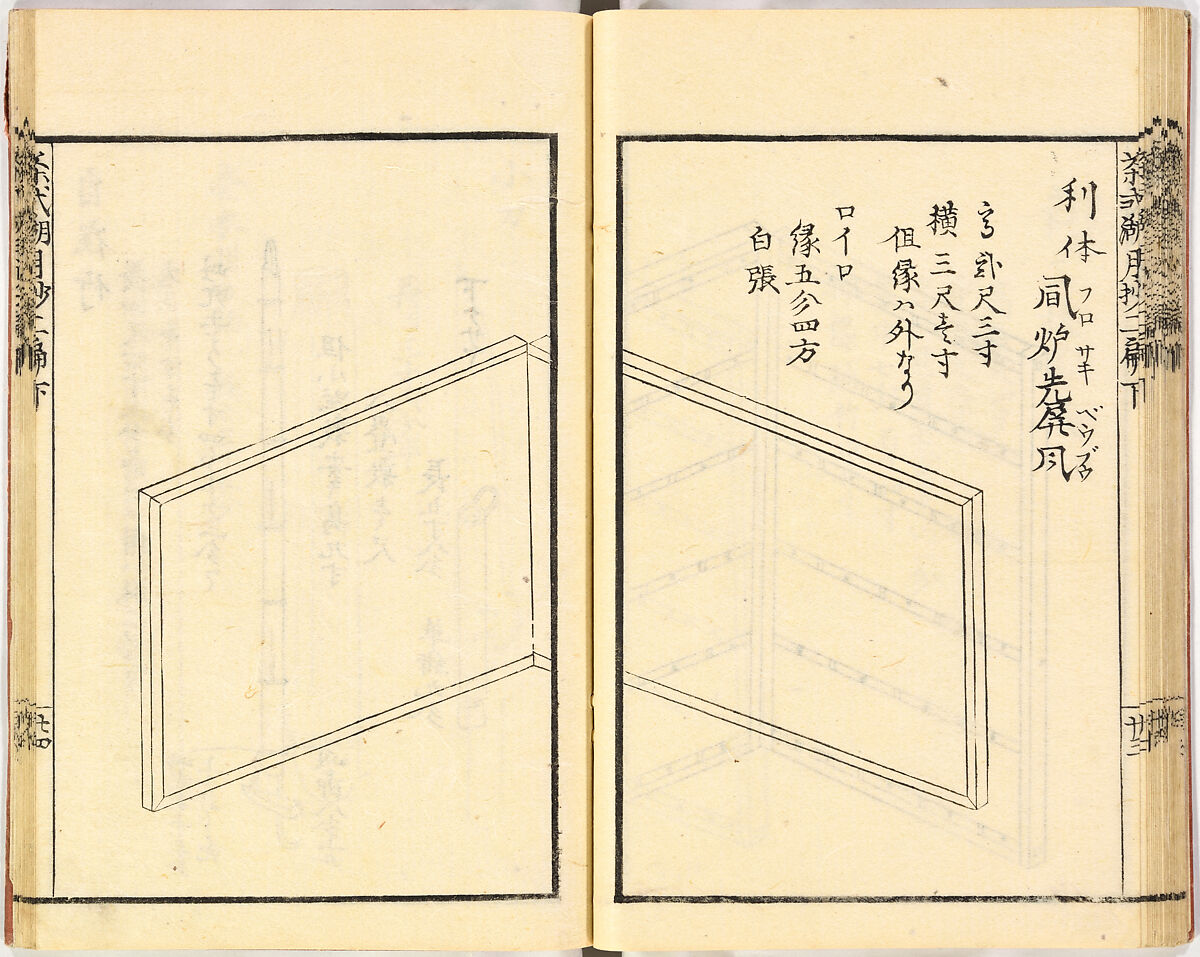 茶式湖月抄二編下
廿三
利休風炉先屏風
フロサキベウブウ
高貳尺三寸
横三尺壱寸
但縁ハ外なり
ロイロ
縁五分四方
白張
茶式湖月抄二編下
廿四